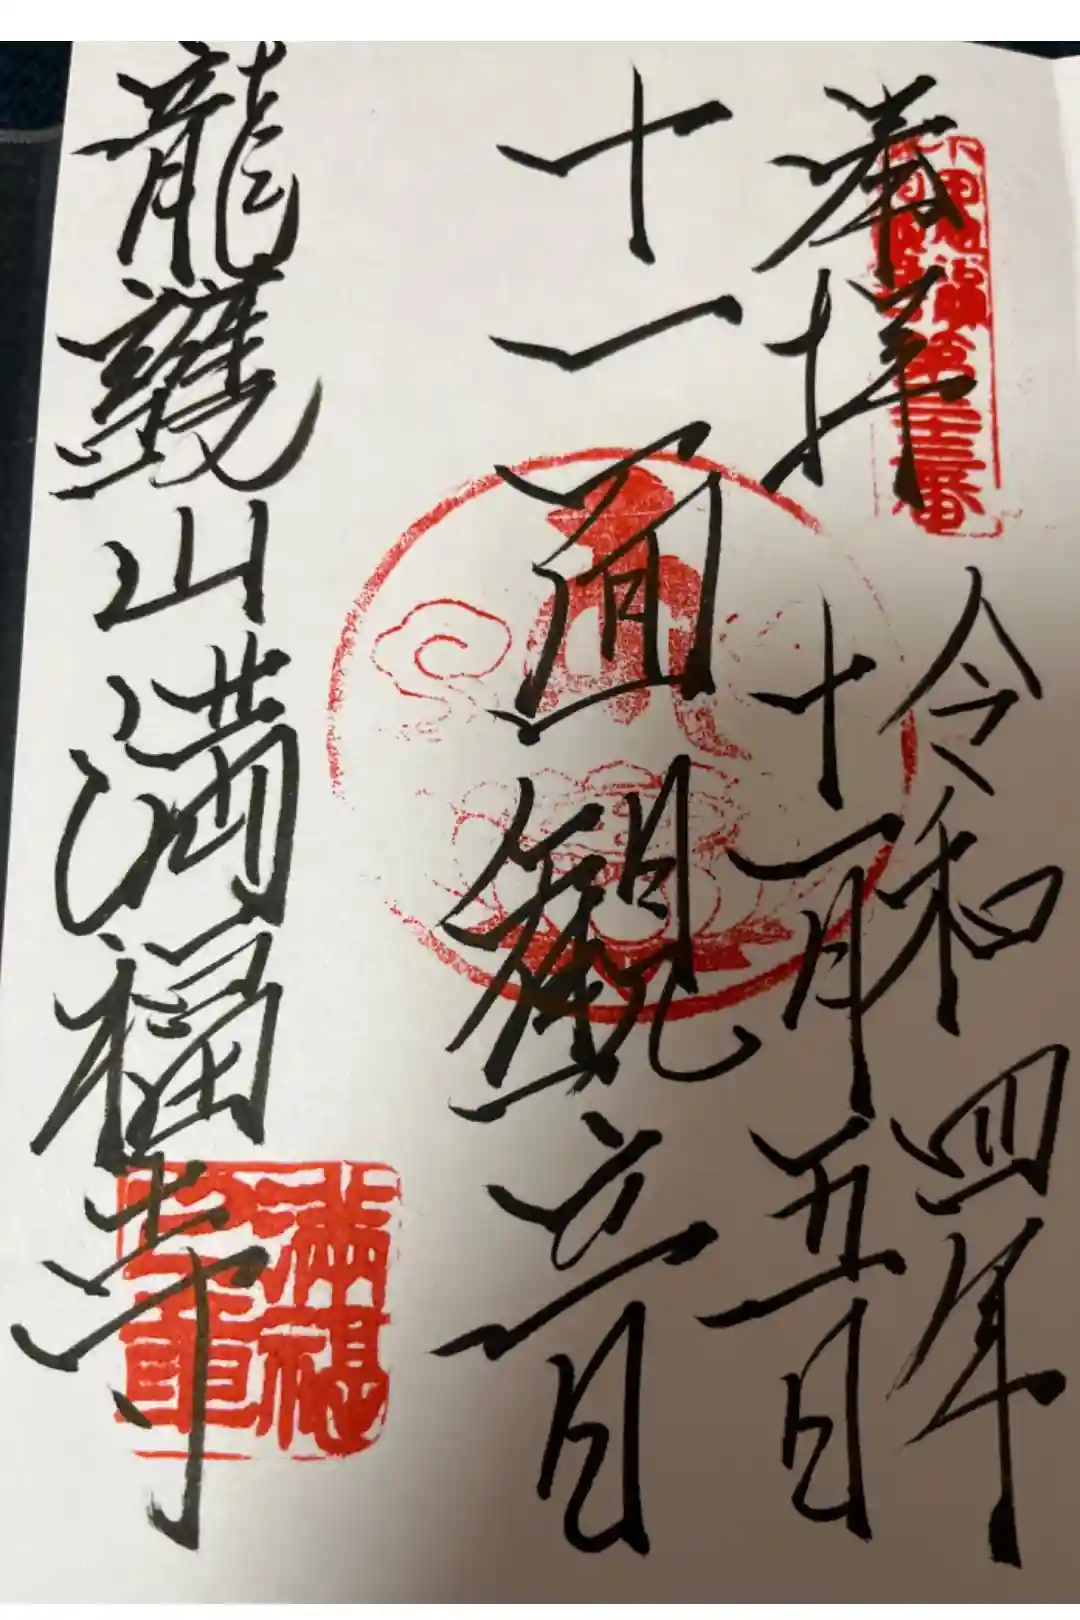 奉拝
令和四年
十一月五日
十一面観音
龍護山満福寺